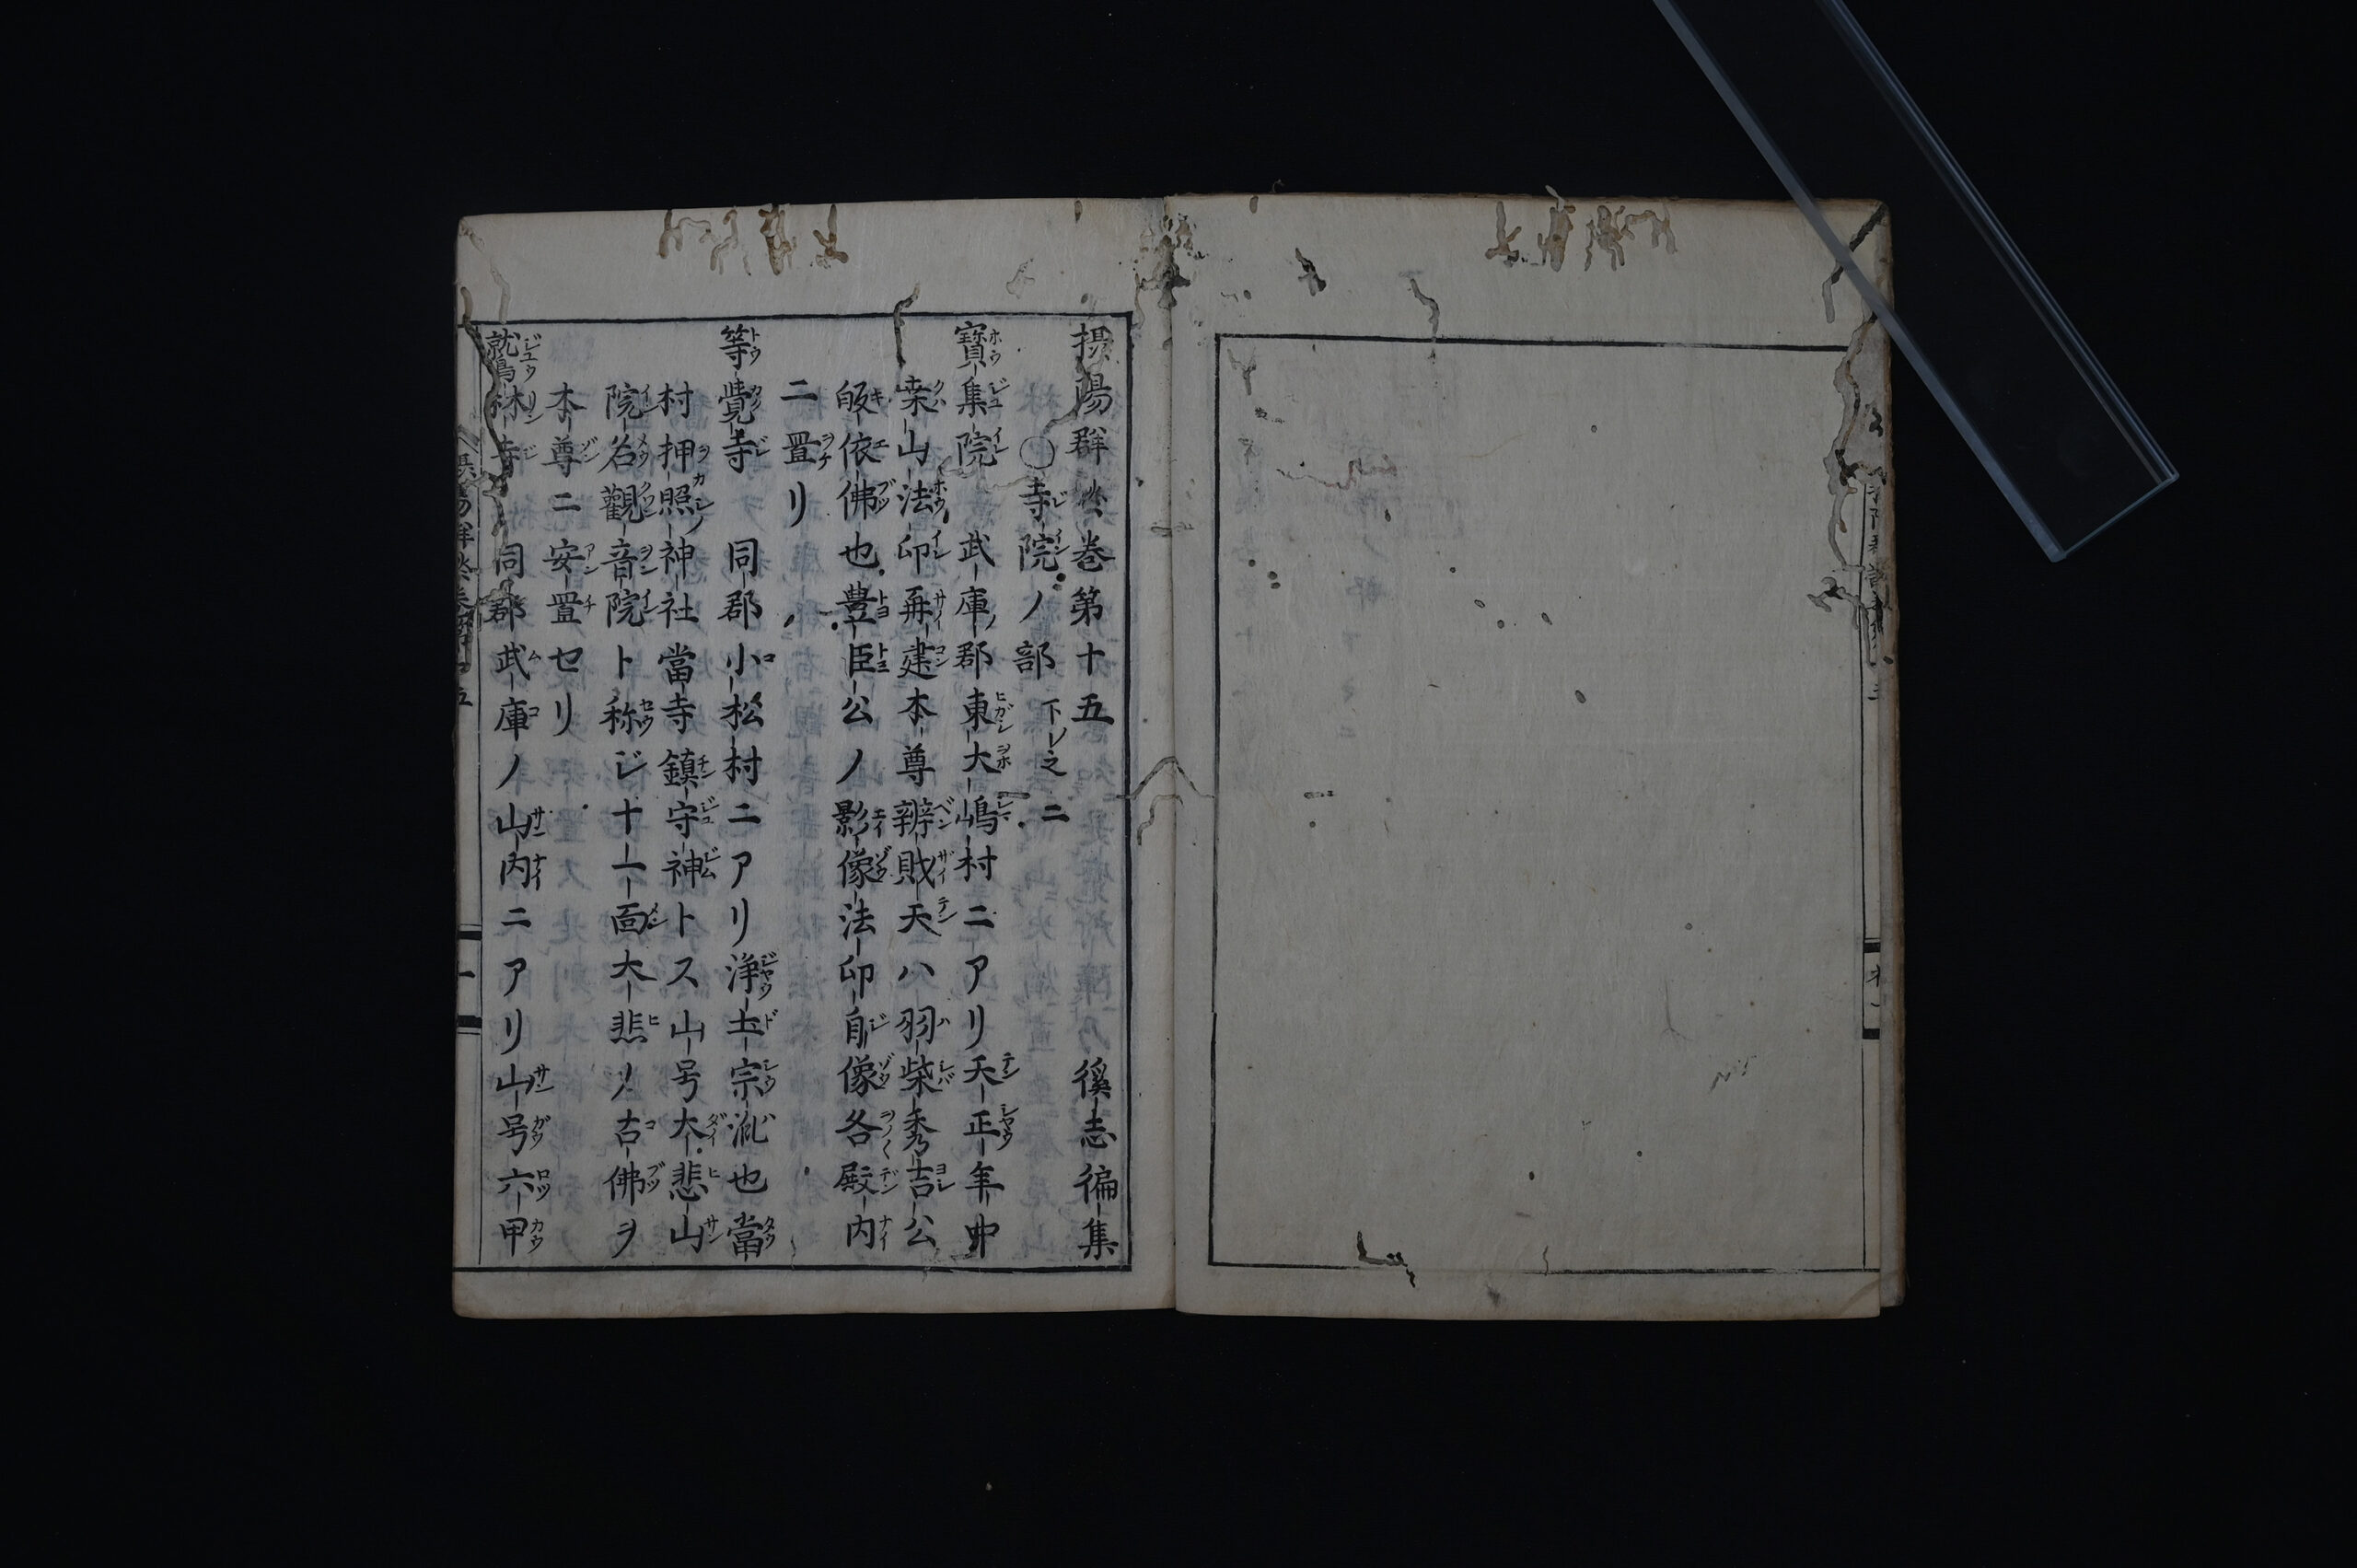 摂陽群談巻第十五 徯志徧集
〇寺院ノ部 下ノ之二
寶集院 武庫郡東大嶋村ニアリ天正年中
桒山法印再建本尊辨財天ハ羽柴秀吉公
皈依佛也豊臣公ノ影像法印自像各殿内
ニ置リ
等覺寺 同郡小松村ニアリ浄土宗流也當
村押照神社當寺鎮守神トス山号大悲山
院名觀音院ト称ジ十一面大悲ノ古佛ヲ
本尊ニ安置セリ
鷲林寺 同郡武庫ノ山内ニアリ山号六甲